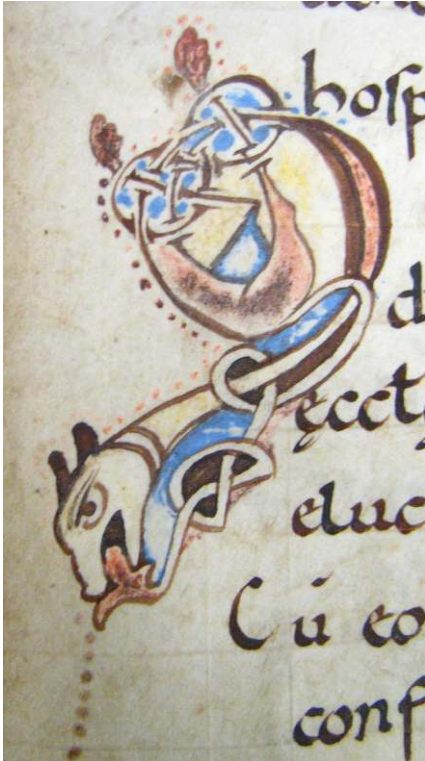 hosp
d
ęcct
eluc
Cū eo
conf